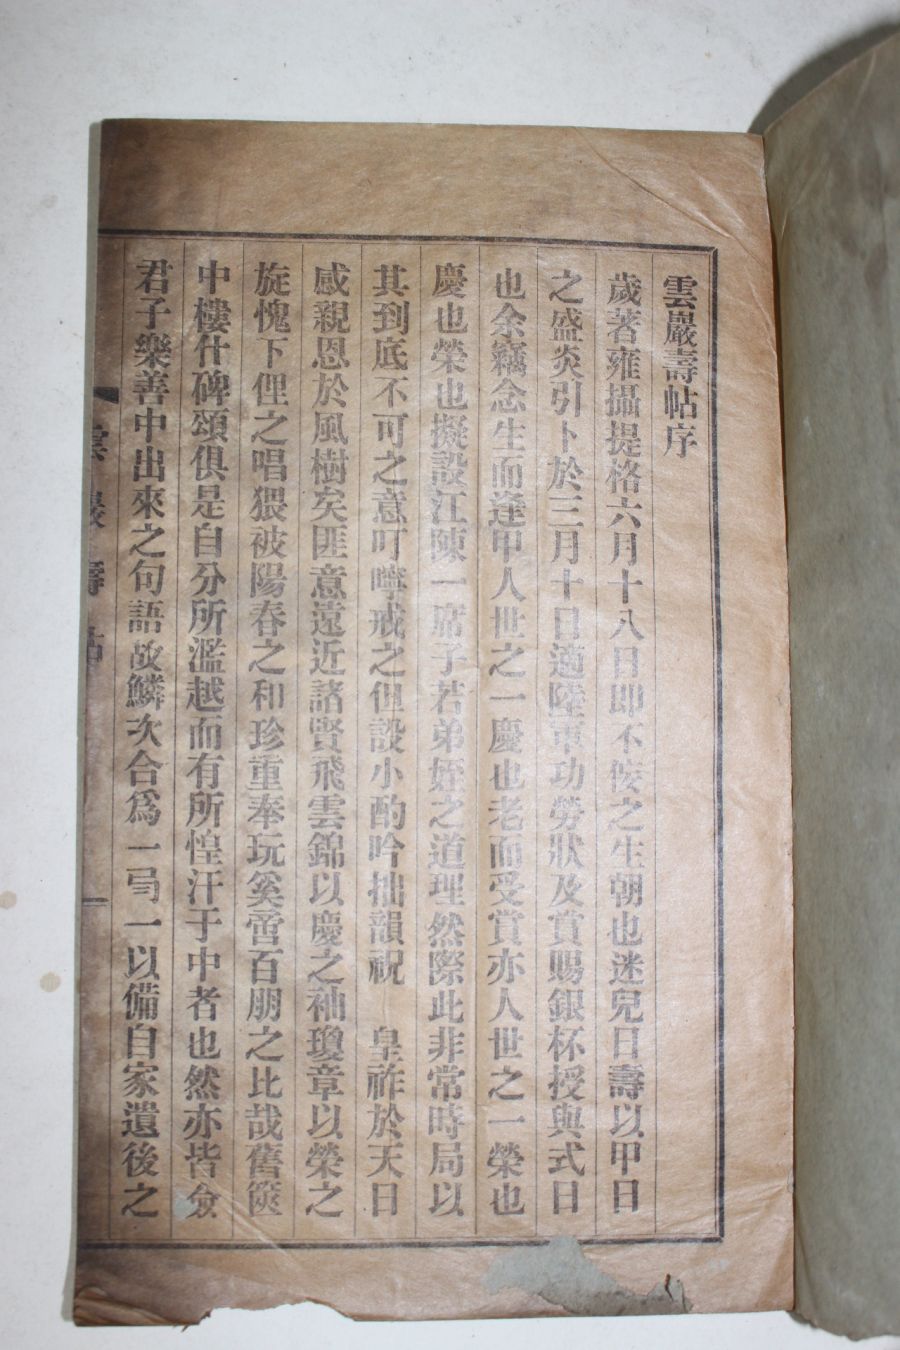 雲巖壽帖序
歲著雍攝提格六月十八日即不佞之生朝也迷兒日壽以甲日
之盛炎引卜於三月十日適陸軍功勞狀及賞賜銀杯授與式日
也余竊念生而逢甲人世之一慶也老而受賞亦人世之一榮也
慶也榮也擬設江陳一席子若弟姪之道理然際此非常時局以
其到底不可之意叮嚀戒之但設小酌吟拙韻祝 皇祚於天日
感親恩於風樹矣匪意遠近諸賢飛雲錦以慶之袖瓊章以榮之
旋愧下俚之唱猥被陽春之和珍重奉玩奚啻百朋之比哉舊篋
中樓什碑頌俱是自分所濫越而有所惶汗于中者也然亦皆僉
君子樂善中出來之句語故鱗次合爲一弓一以備自家遺後之
雲巖壽帖